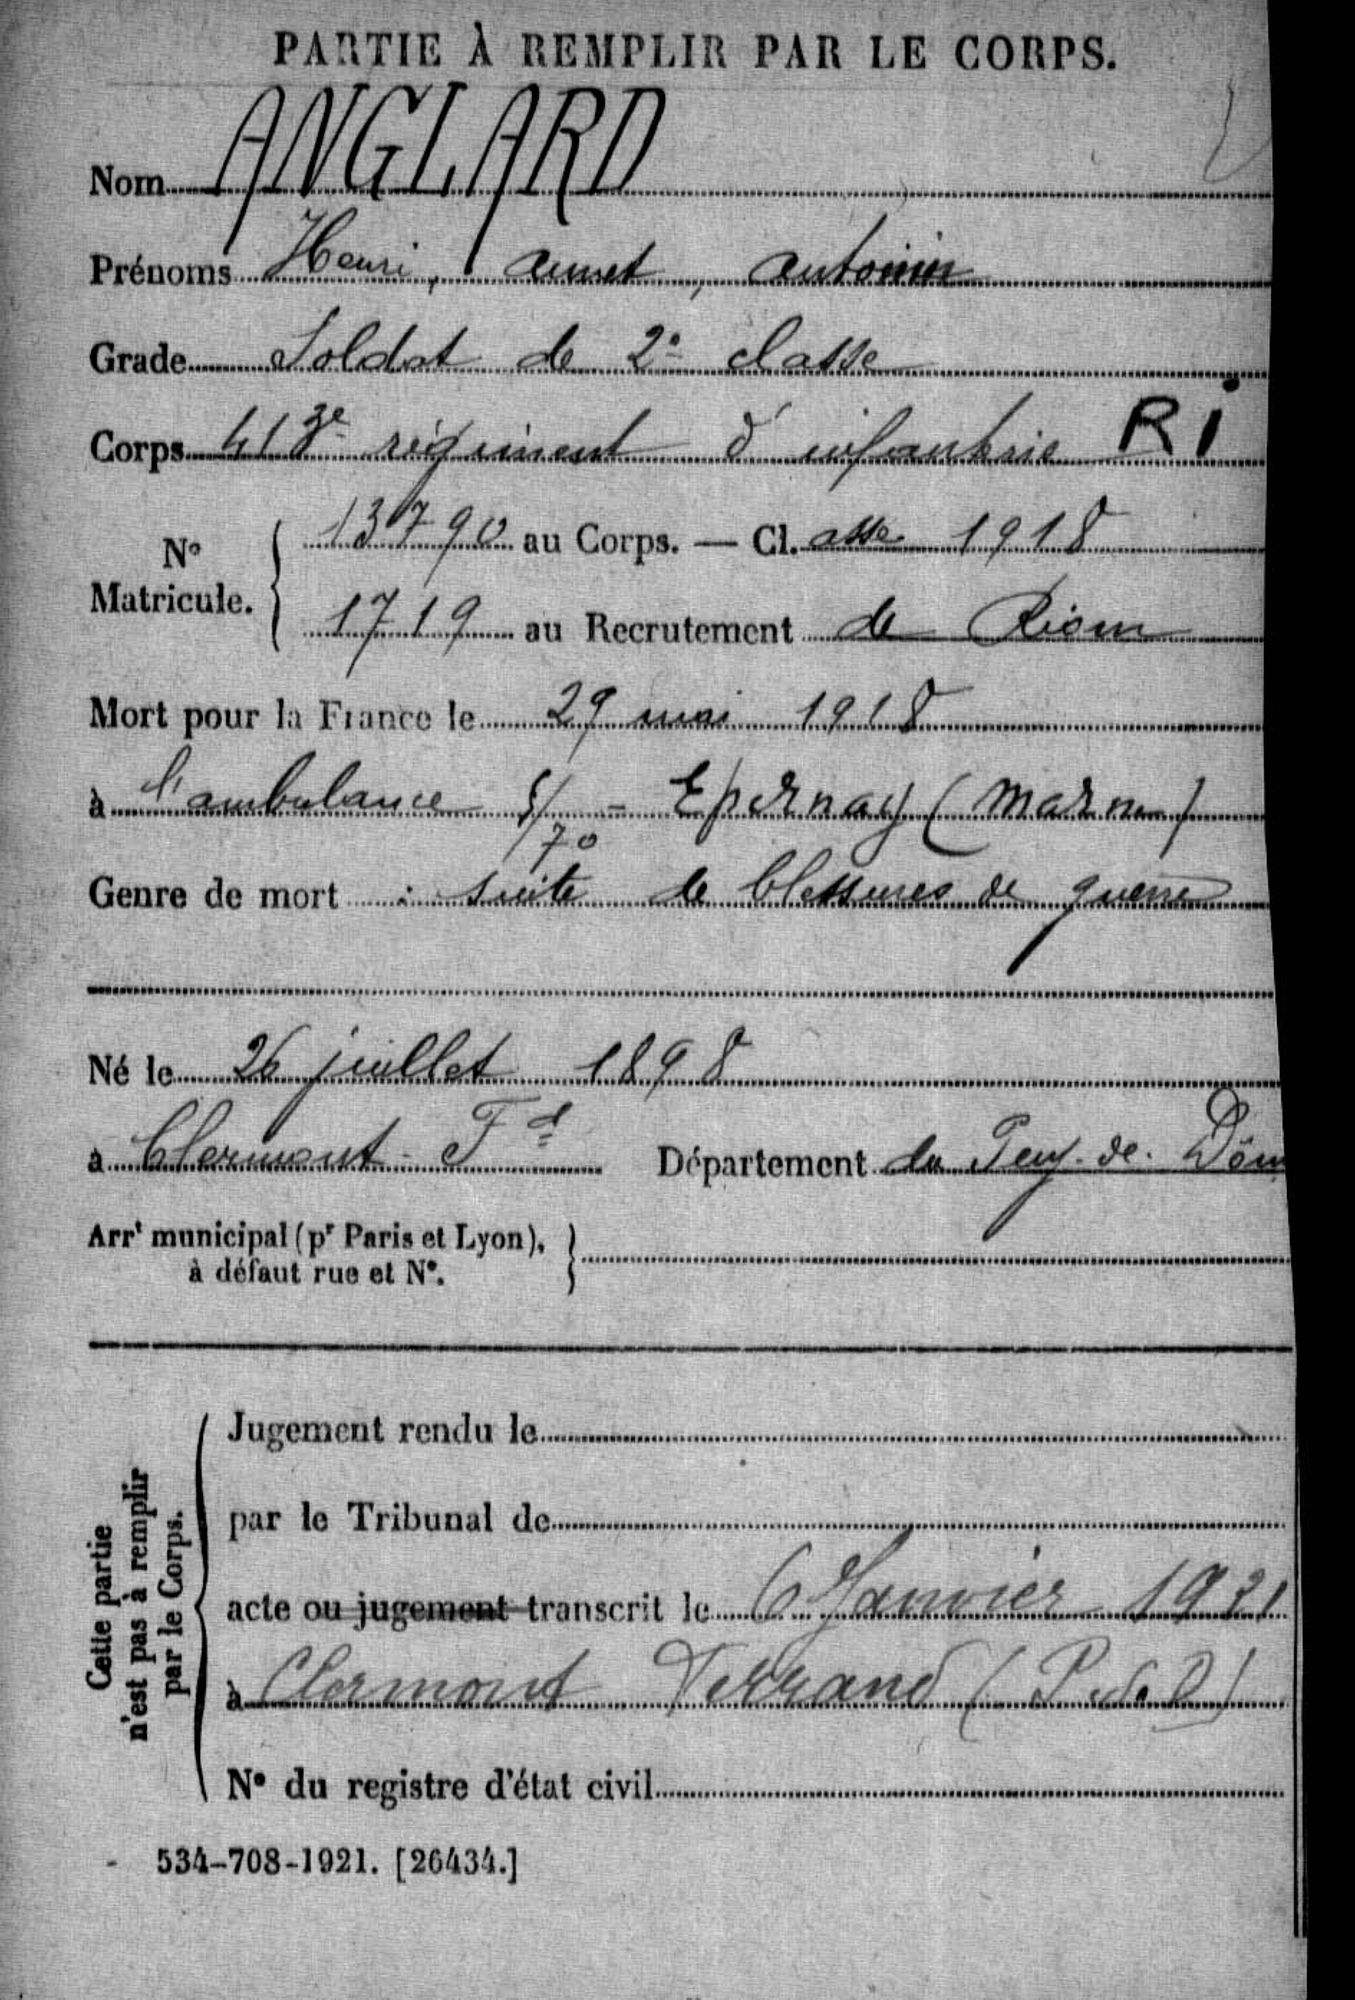 PARTIE À REMPLIR PAR LE CORPS.
Nom ANGLARD
Prénoms Henri, Annet, Antonin
Grade Soldat de 2e classe
Corps 413e régiment d'infanterie RI
No Matricule. 13790 au Corps. — Cl.asse 1918
1719 au Recrutement de Riom
Mort pour la France le 29 mai 1918
à l'ambulance 5/70 - Epernay (Marne)
Genre de mort : suite de blessures de guerre
Né le 26 juillet 1898
à Clermont-Fd Département du Puy-de-Dôm
Arrt municipal (pr Paris et Lyon),
à défaut rue et N°.
Cette partie
n'est pas à remplir
par le Corps.
Jugement rendu le
par le Tribunal de
acte ou jugement transcrit le 6 Janvier 1921
à Clermont Ferrand (P. de D)
N° du registre d'état civil
534-708-1921. [26434.]